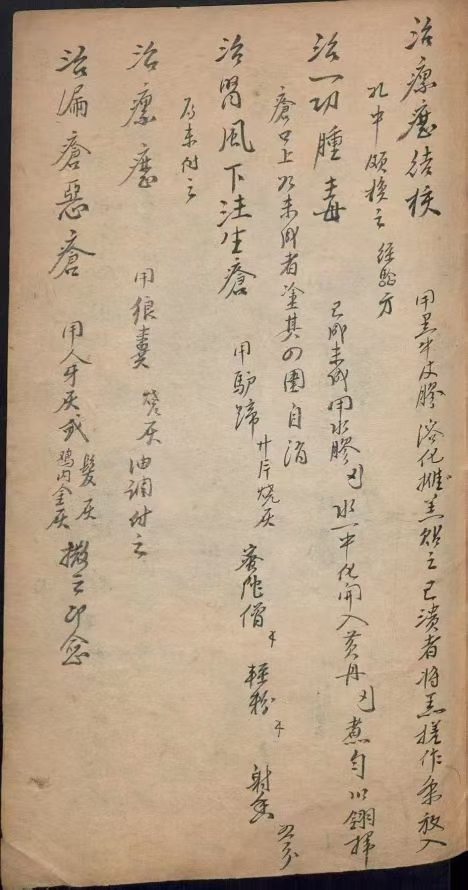 治瘰癧結核 用黑牛皮膠溶化攤羔貼之已潰者將羔搓作条放入
孔中頻換之 經驗方
治一切腫毒 已成未成用水膠 水一中化開入黃丹 煮勻以翎掃
瘡口上如未成者塗其四圍自消
治腎風下注生瘡 用馿蹄廿片烧灰 蜜陀僧 輕粉 射香 五分
為末付之
治瘰癧 用狼糞 燒灰油調付之
治漏瘡惡瘡 用人牙灰或 髮灰 鸡内金灰 摻之即念